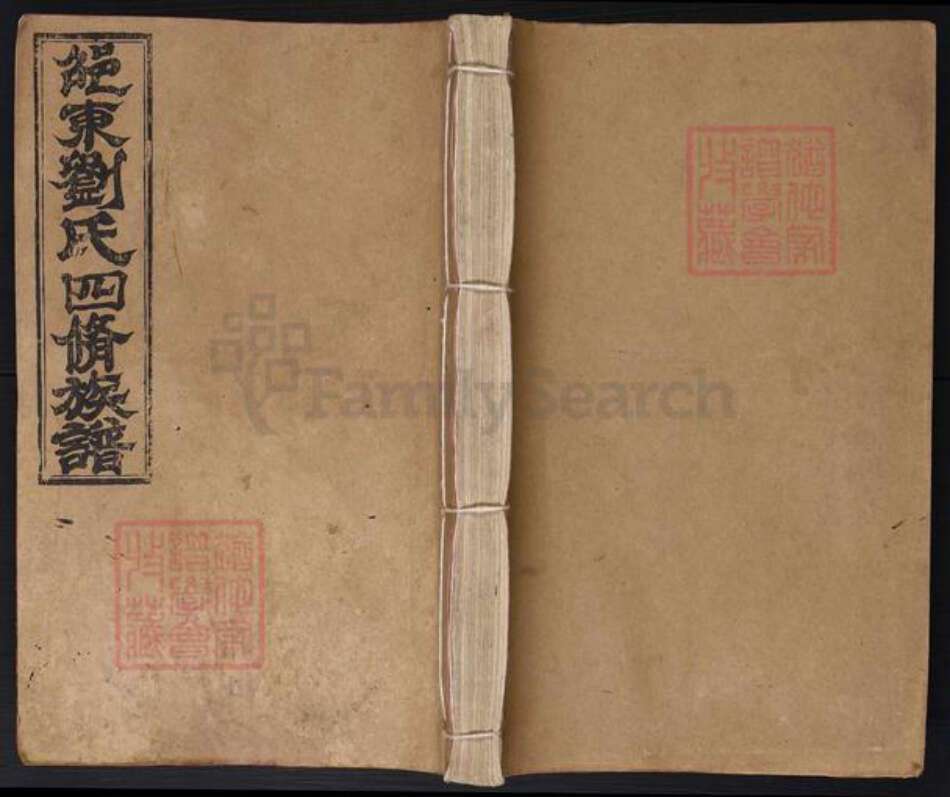 邵東劉氏四脩族譜
猶他家
譜學會
收藏
猶他家
譜學會
收藏
FamilySearch